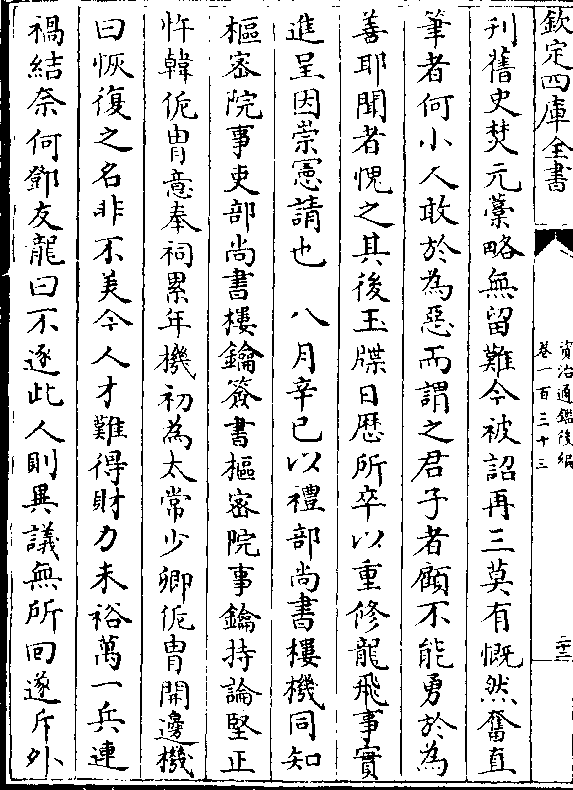 欽定四庫全書
資治通鑑後編
卷一百三十三
二十三
刋舊史焚元藁略無留難今被詔再三莫有慨然奮直
筆者何小人敢於為惡而謂之君子者顧不能勇於為
善耶聞者愧之其後玉牒日厯所卒以重修龍飛事實
進呈因崇憲請也　八月辛巳以禮部尚書樓機同知
樞密院事吏部尚書樓鑰簽書樞密院事鑰持論堅正
忤韓侂胄意奉祠累年機初為太常少卿侂胄開邊機
曰恢復之名非不美今人才難得財力未裕萬一兵連
禍結奈何鄧友龍曰不逐此人則異議無所回遂斥外